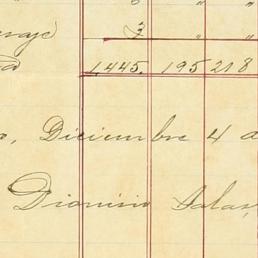 2 " "
1,445. 195 218
Diciembre 4 d
Dionisio Salas,